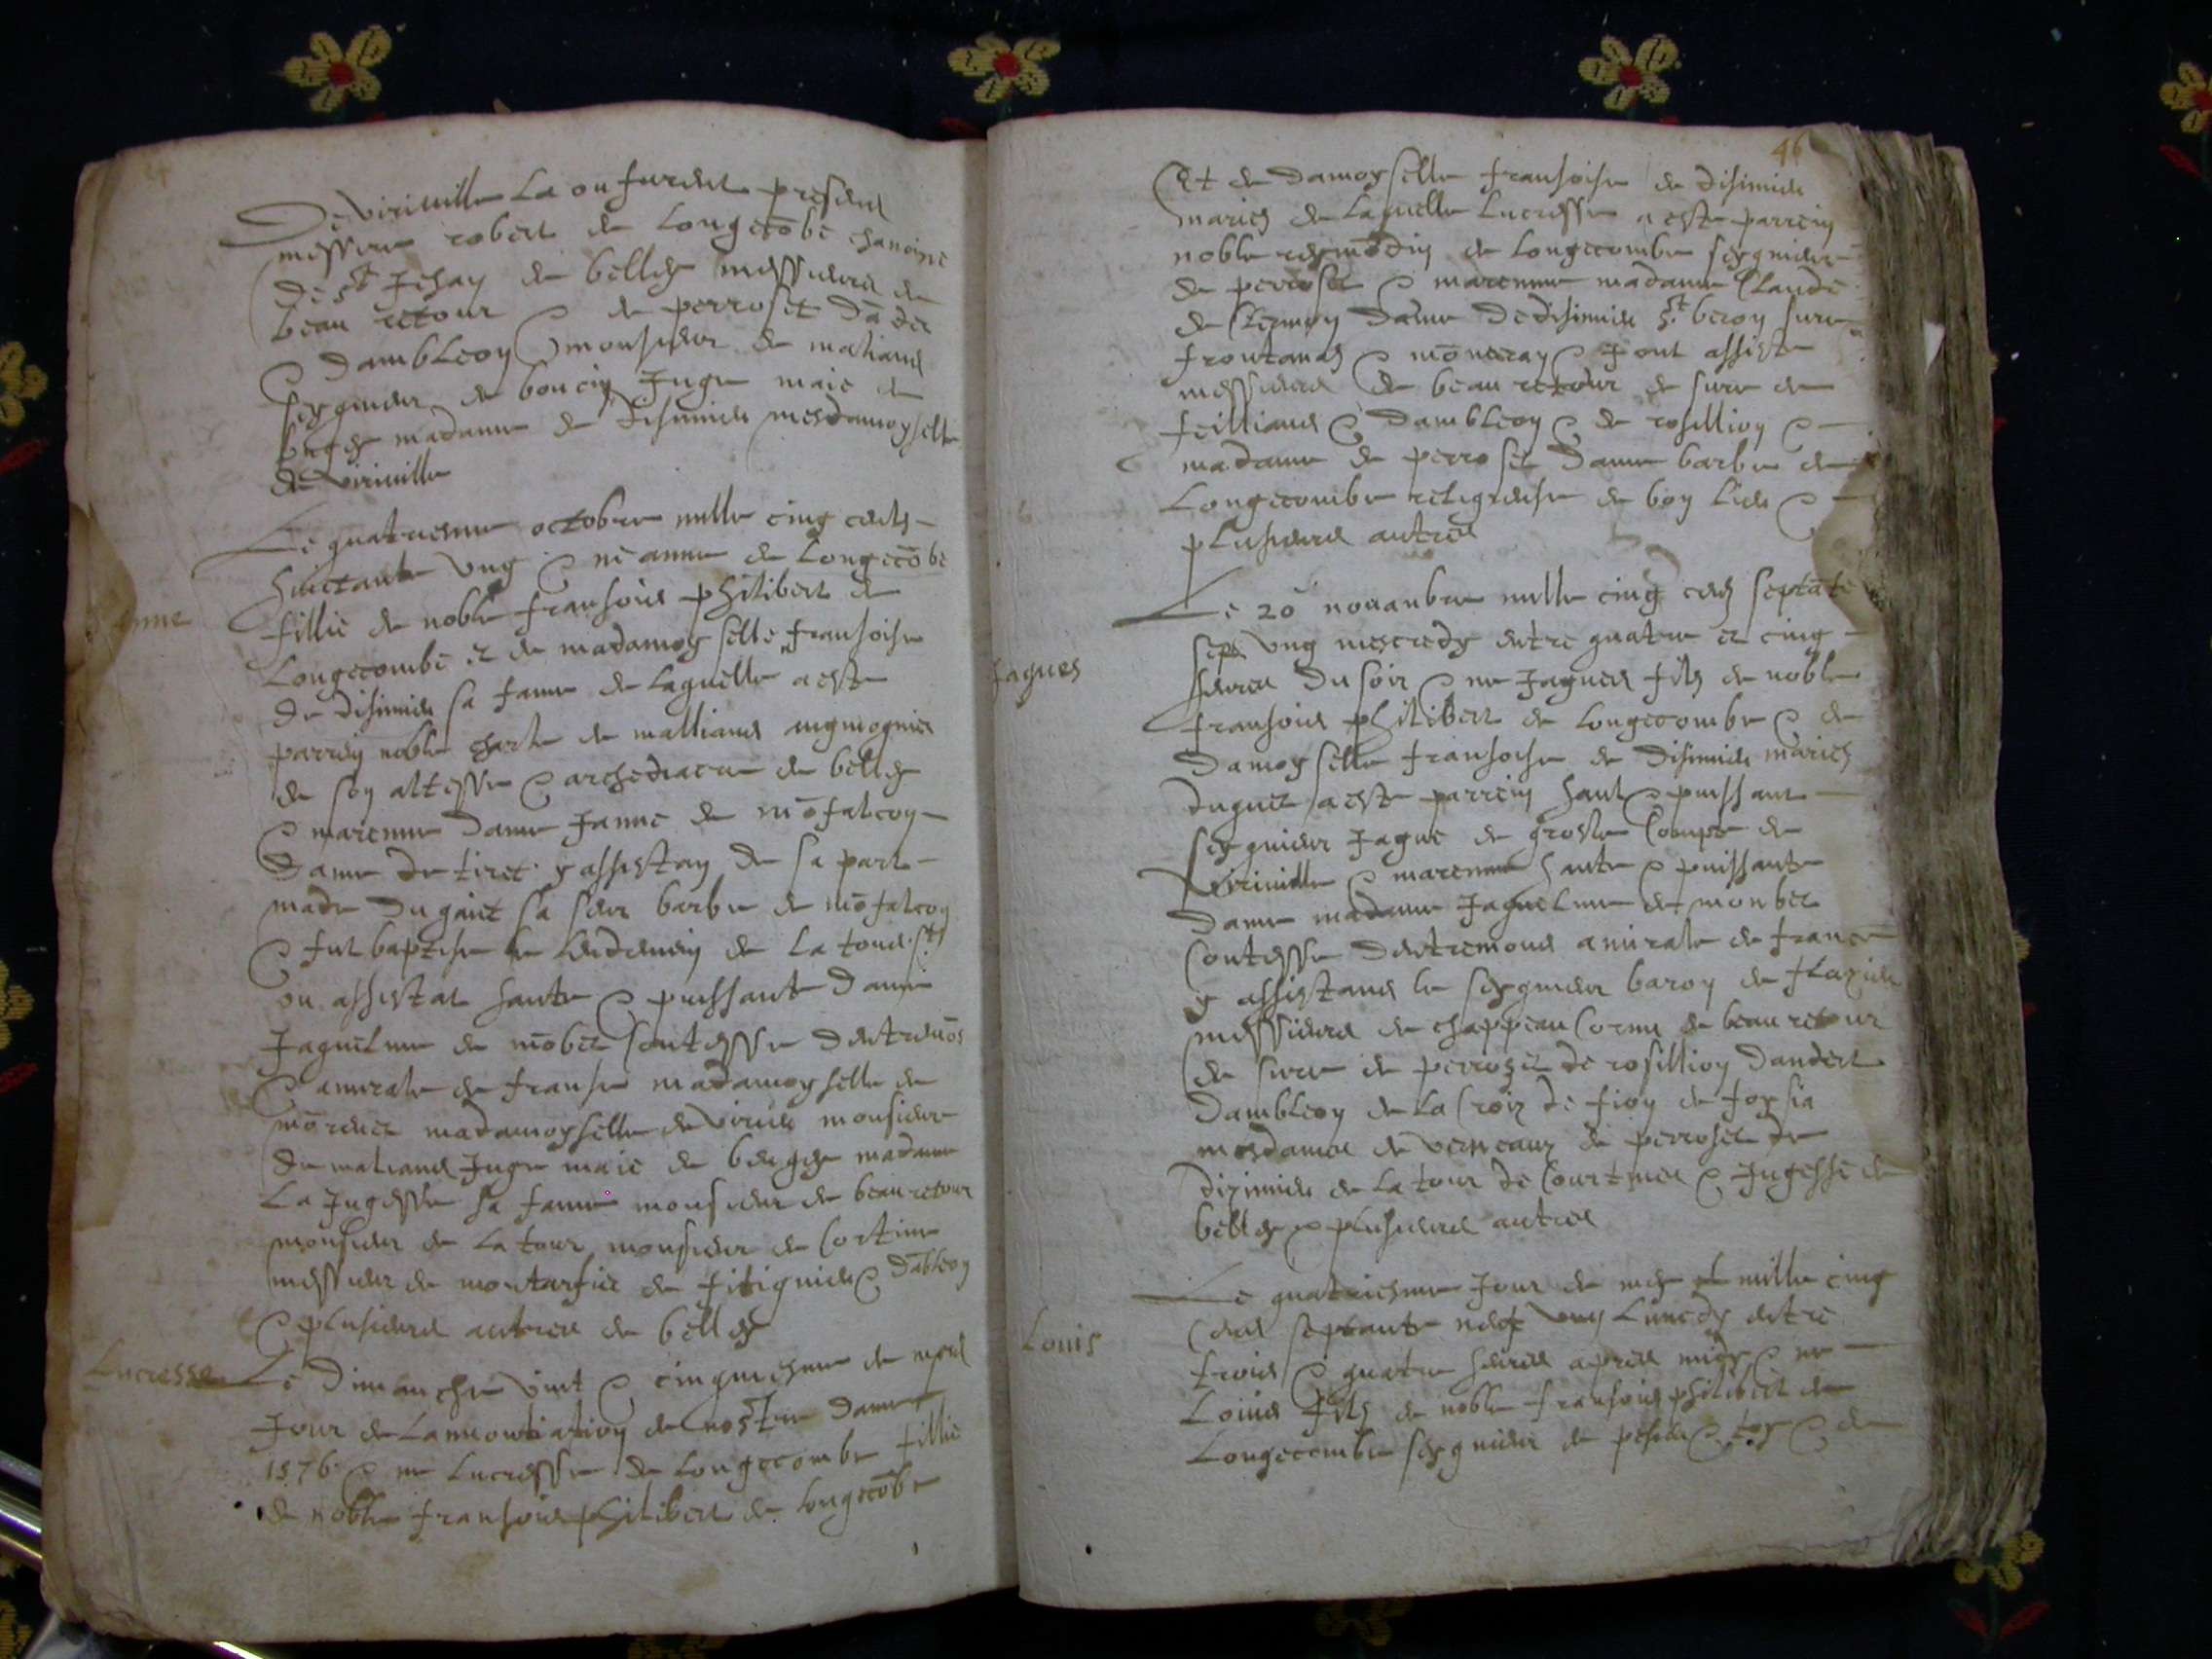 De viriville la ou furent present
messire robert de Longecōbe chanoine
de st Jehan de belley messieurs de
beau retour & de perroset Dādert
& dambleon monsieur de maliand
seygneur de boucin Juge maie de
madame de disimieu mesdamoyselle
de viriville
Le quatriesme octobre mille cinq cents
ung & ne anne de Longecōbe
Anne
fillie de noble fransois philibert de
Longecombe et de madamoyselle fransoise
de disimieu sa fame de laquelle a este
parrein noble charle de malliand
de son altesse & archediacre de belley
& marenne dame Janne de mōfalcon
dame de tiret y assistan de sa part
sa seur barbe de mōfalcon
& fut baptise le lendemein de la tous sts
ou assistat haute & puissante dame
Jaqueline de mōbet Contesse dentremōs
& amirale de franse madamoyselle de
madamoyselle de virieu monsieur
de maliand Juge maie de beugey madame
La Jugesse sa fame monsieur de beau retour
monsieur de la tour monsieur de Cortine
messieur de montarfier de fitignieu & dābleon
& plusieurs autres de belley
Lucresse
Le dimanche vint & cinquiesme de mars
Jour de Lannontiation de nostre dame
1576 & ne Lucresse de Longecombe fillie
de noble fransois philibert de longecōbe
46
Et de damoyselle fransoise de disimieu
maries de laquelle Lucresse a este parrein
noble de Longecombe seygnieur
de perroset & marenne madame Claude
de Clermon dame de disimieu st beron sure
frontanas & & J ont assiste
messieurs de beau retour de sure de
feilliand & dambleon & de rosillion &
madame de perroset dame barbe de
Longecombe religieuse de bon lieu &
plusieurs autres
Le 20 novanbre mille cinq cens septāte
sept ung mescredy entre quatre et cinq
Jaques
heures du soir & ne Jaques fils de noble
fransois philibert de longecombe & de
damoyselle fransoise de disimieu maries
duquel a este parrein haut & puissant
seygnieur Jaque de grosle Compte de
Viriville & marenne haute & puissante
dame madame Jaqueline de monbet
Contesse dentremons amirale de france
y assistans le seygneur baron de flaxieu
messieurs de chappeau Cornu de beau retour
de sure de perroset de rosillion dandert
dambleon de la Croix de fion de forsia
mesdames de verneaux de perroset de
disimieu de la tour de Courtines & Jugesse de
belley & plusieurs autres
Le quatriesme Jour de mey mille cinq
cens septante neuf ung Lunedy entre
Louis
trois & quatre heures apres midy & ne
Loius fils de noble fransois philibert de
Longecombe seygnieur de pesieu & toy & de